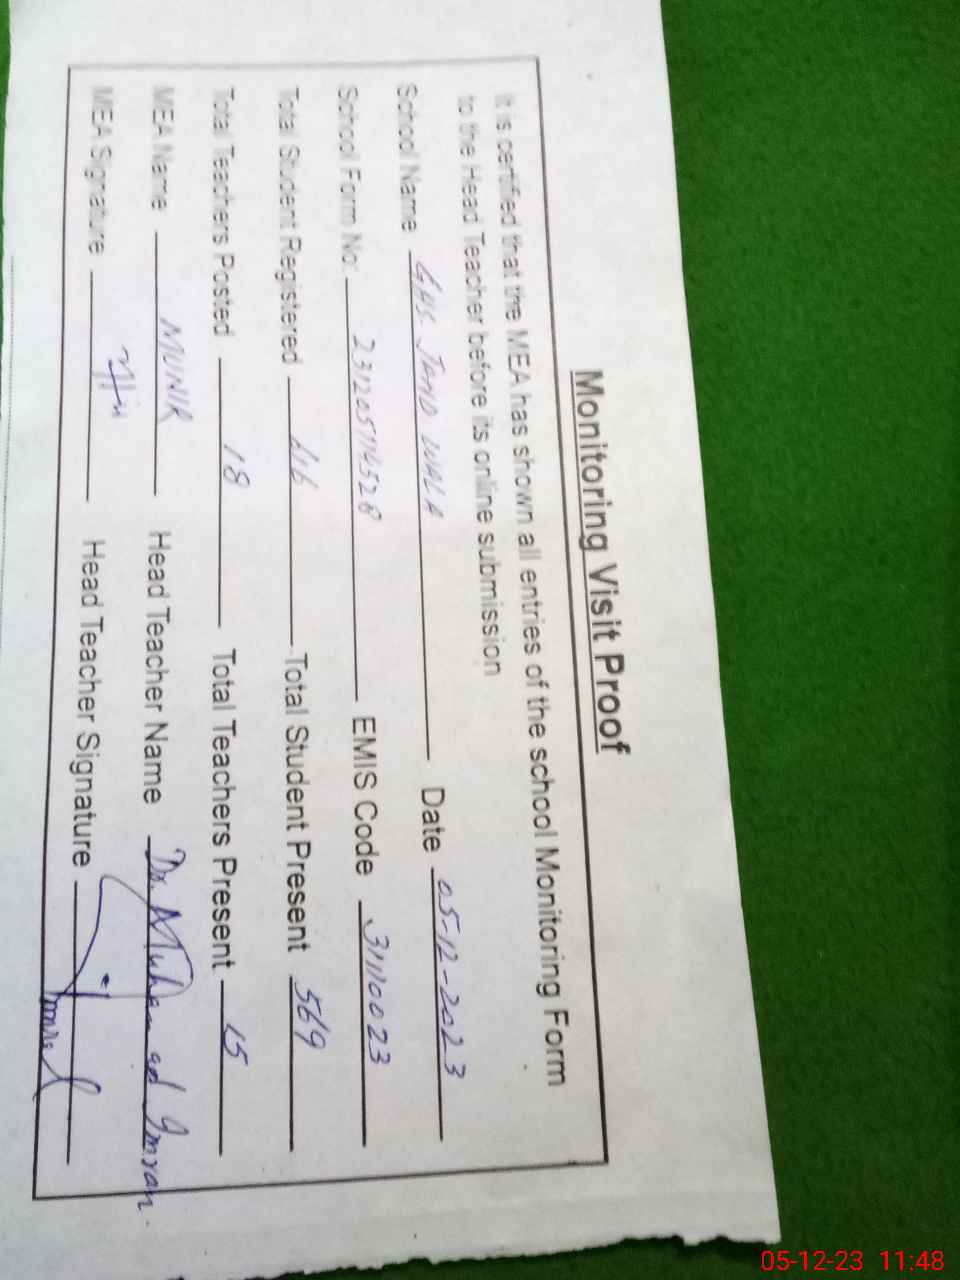 Monitoring Visit Proof
It is certified that the MEA has shown all entries of the school Monitoring Form
to the Head Teacher before its online submission
School Name GHS JAND WALA Date 05-12-2023
School Form No: EMIS Code 31110023
Total Student Registered 616 Total Student Present 569
Total Teachers Posted 18 Total Teachers Present 15
MEA Name MUNIR Head Teacher Name Dr. Muhammad Imran.
MEA Signature Head Teacher Signature Imran
05-12-23 11:48